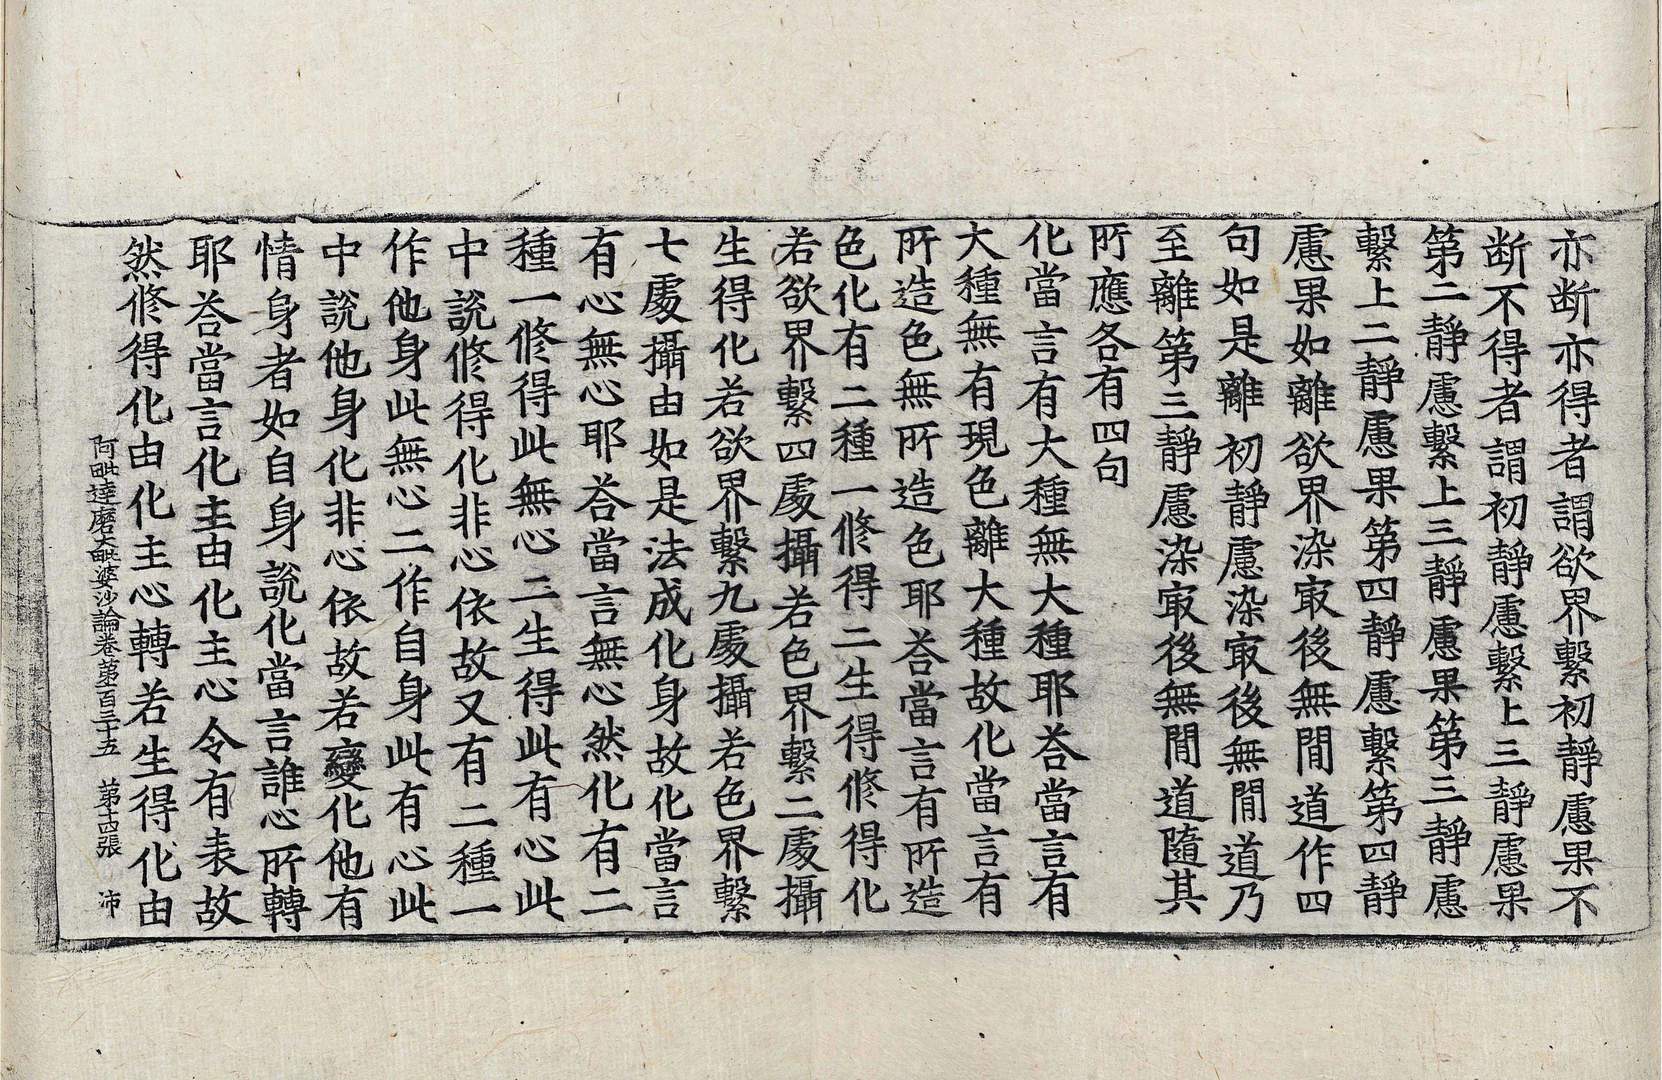 亦断亦得者謂欲界繫初靜慮果不
断不得者謂初靜慮繫上三靜慮果
第二靜慮繫上三靜慮果第三靜慮
繫上二靜慮果第四靜慮繫第四靜
慮果如離欲界染㝡後無閒道作四
句如是離初靜慮染㝡後無閒道乃
至離第三靜慮染㝡後無閒道隨其
所應各有四句
化當言有大種無大種耶荅當言有
大種無有現色離大種故化當言有
所造色無所造色耶荅當言有所造
色化有二種一修得二生得修得化
若欲界繫四處攝若色界繫二處攝
生得化若欲界繫九處攝若色界繫
七處攝由如是法成化身故化當言
有心無心耶荅當言無心然化有二
種一修得此無心二生得此有心此
中說修得化非心依故又有二種一
作他身此無心二作自身此有心此
中說他身化非心依故若變化他有
情身者如自身說化當言誰心所轉
耶荅當言化主由化主心令有表故
然修得化由化主心轉若生得化由
阿毗達磨大毗婆沙論卷第一百三十五 第十四張 沛